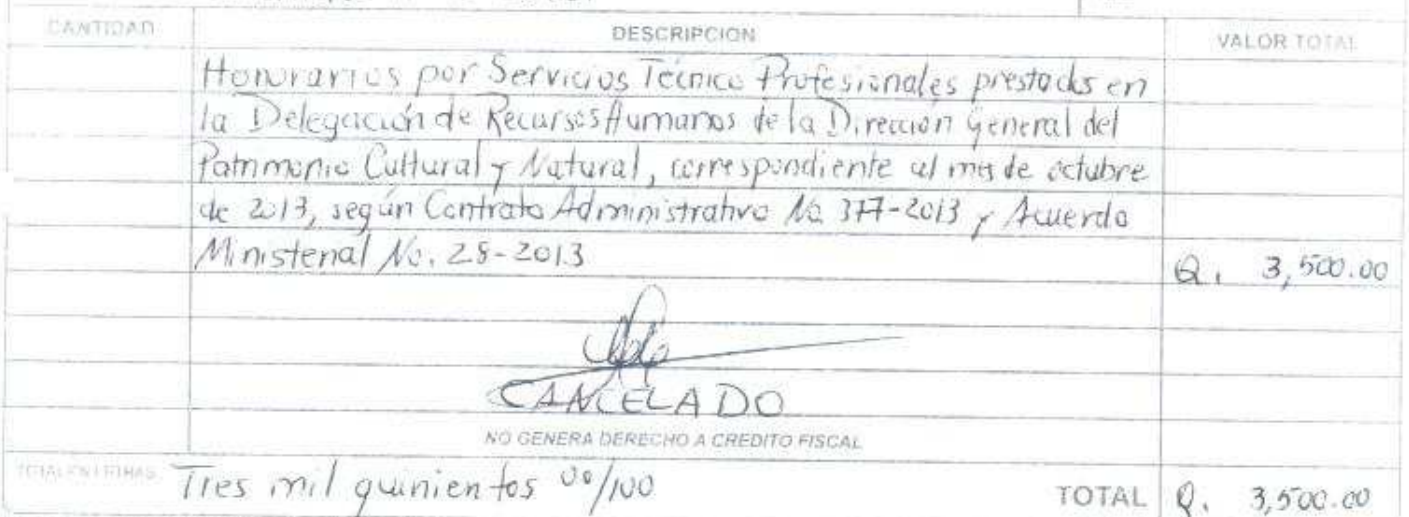 CANTIDAD DESCRIPCION VALOR TOTAL
Honorarios por Servicios Técnico Profesionales prestados en
la Delegación de Recursos Humanos de la Dirección General del
Patrimonio Cultural y Natural, correspondiente al mes de octubre
de 2013, según Contrato Administrativo No. 377-2013 y Acuerdo
Ministerial No. 28-2013 Q. 3,500.00
CANCELADO
NO GENERA DERECHO A CREDITO FISCAL
TOTAL EN LETRAS Tres mil quinientos 00/100 TOTAL Q. 3,500.00